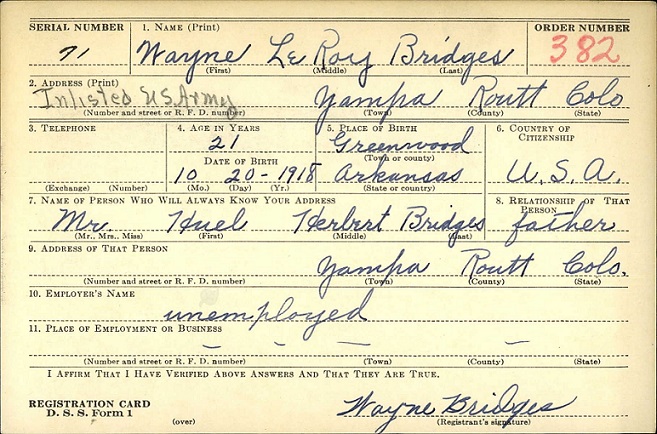 SERIAL NUMBER 1. NAME (Print) ORDER NUMBER
71 Wayne Le Roy Bridges 382
(First) (Middle) (Last)
2. ADDRESS (Print)
Inlisted U.S. Army Yampa Routt Colo
(Number and street or R. F. D. number) (Town) (County) (State)
3. TELEPHONE 4. AGE IN YEARS 5. PLACE OF BIRTH 6. COUNTRY OF CITIZENSHIP
21 Greenwood
(Town or county)
DATE OF BIRTH
10 20-1918 Arkansas U.S.A.
(Exchange) (Number) (Mo.) (Day) (Yr.) (State or country)
7. NAME OF PERSON WHO WILL ALWAYS KNOW YOUR ADDRESS 8. RELATIONSHIP OF THAT PERSON
Mr. Huel Herbert Bridges father
(Mr., Mrs., Miss) (First) (Middle) (Last)
9. ADDRESS OF THAT PERSON
Yampa Routt Colo.
(Number and street or R. F. D. number) (Town) (County) (State)
10. EMPLOYER'S NAME
unemployed
11. PLACE OF EMPLOYMENT OR BUSINESS
– – — –
(Number and street or R. F. D. number) (Town) (County) (State)
I AFFIRM THAT I HAVE VERIFIED ABOVE ANSWERS AND THAT THEY ARE TRUE.
REGISTRATION CARD
D. S. S. Form 1 Wayne Bridges
(over) (Registrant's signature)